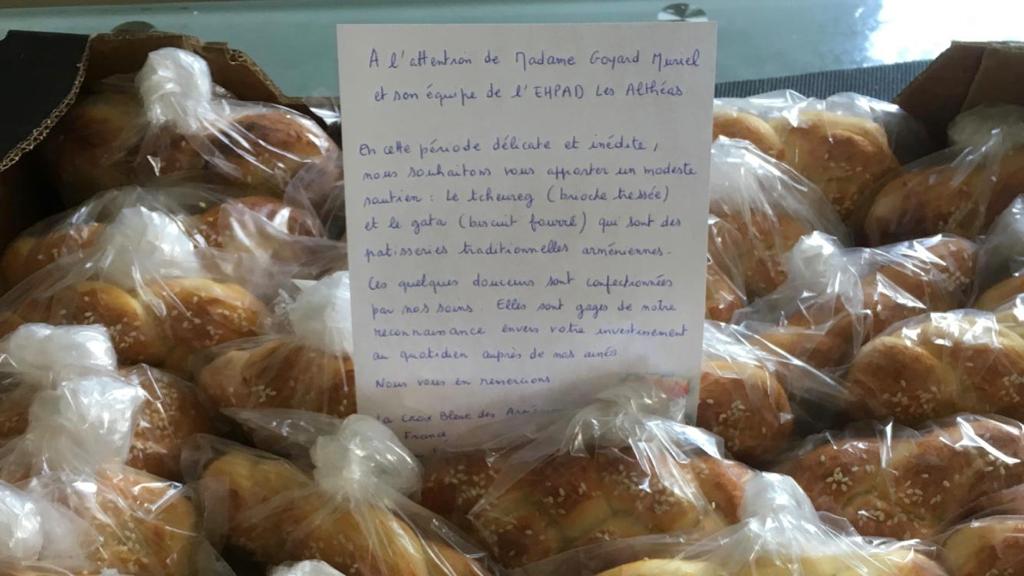 A l'attention de Madame Goyard Muriel
et son équipe de l'EHPAD Les Althéas
En cette période délicate et inédite,
nous souhaitons vous apporter un modeste
soutien : Le tcheureg (brioche tressée)
et le gata (biscuit fourré) qui sont des
patisseries traditionnelles arméniennes.
Ces quelques douceurs sont confectionnées
par nos soins. Elles sont gages de notre
reconnaissance envers votre investissement
au quotidien auprès de nos ainés
Nous vous en remercions
La Croix Bleue des
France